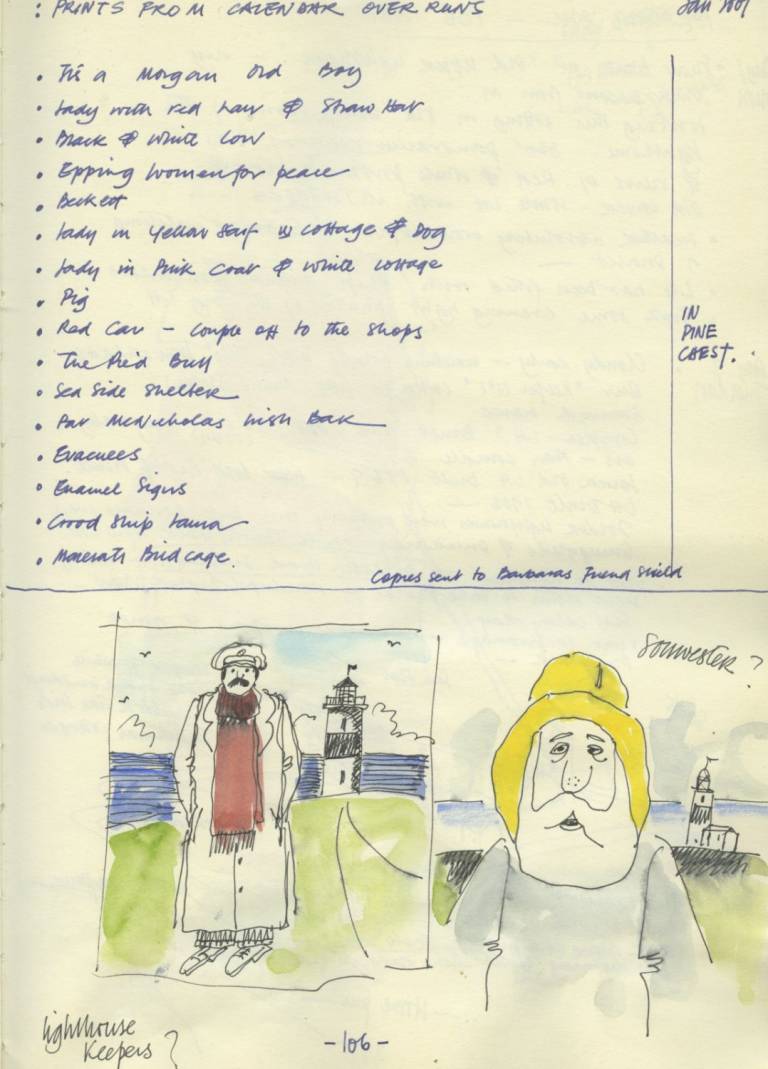 : PRINTS FROM CALENDAR OVER RUNS
Jan
• Tis a Morgan Old Boy
• Lady with red hair & Straw Hat
• Black & White Cow
• Epping Women for peace
• Beckett
• Lady in Yellow Scarf W Cottage & Dog
• Lady in Pink Coat & White Cottage
• Pig
• Red Car – Couple off to the shops
• The Pied Bull
• Sea Side Shelter
• Pat McNicholas Irish Bar
• Evacuees
• Enamel Signs
• Good Ship Laura
• Maserati Birdcage.
IN
PINE
CHEST.
Copies sent to Barbaras Friend
Souwester ?
lighthouse
Keepers ?
-106-